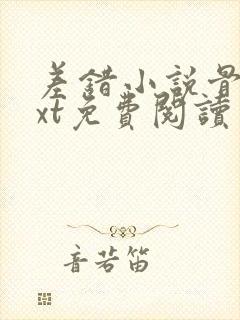 差錯小說骨
xt免費閱讀
音若笛